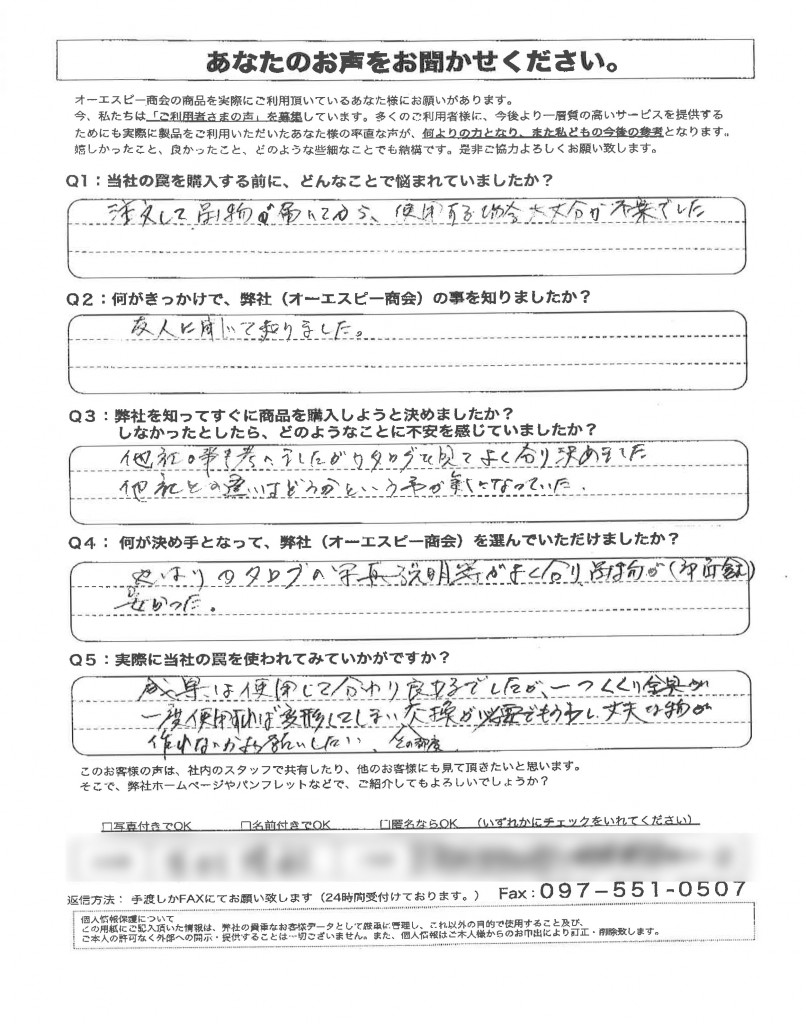 あなたのお声をお聞かせください。
オーエスピー商会の商品を実際にご利用頂いているあなた様にお願いがあります。
今、私たちは「ご利用者さまの声」を募集しています。多くのご利用者様に、今後より一層質の高いサービスを提供する
ためにも実際に製品をご利用いただいたあなた様の率直な声が、何よりの力となり、また私どもの今後の参考となります。
嬉しかったこと、良かったこと、どのような些細なことでも結構です。是非ご協力よろしくお願い致します。
Q1:当社の罠を購入する前に、どんなことで悩まれていましたか?
注文して品物が届いてから、使用する場合大丈夫か不安でした
Q2:何がきっかけで、弊社(オーエスピー商会)の事を知りましたか?
友人に聞いて知りました。
Q3:弊社を知ってすぐに商品を購入しようと決めましたか?
しなかったとしたら、どのようなことに不安を感じていましたか?
他社の事も考へましたがカタログを見てよく分り決めました
他社との違いはどうかという事が気になっていた.
Q4: 何が決め手となって、弊社(オーエスピー商会)を選んでいただけましたか?
やはりカタログの写真説明等がよく分り、品物が
安かった。
Q5:実際に当社の罠を使われてみていかがですか?
成果は使用して分わり良好でしたが、一つくくり金具が
一度使用すれば変形してしまい交換が必要でもう少し丈夫な物が
作れないかお願いしたい、その都度
このお客様の声は、社内のスタッフで共有したり、他のお客様にも見て頂きたいと思います。
そこで、弊社ホームページやパンフレットなどで、ご紹介してもよろしいでしょうか?
□写真付きでOK □名前付きでOK □匿名ならOK (いずれかにチェックをいれてください)
返信方法: 手渡しかFAXにてお願い致します(24時間受付けております。) Fax:097-551-0507
個人情報保護について
この用紙にご記入頂いた情報は、弊社の貴重なお客様データとして厳重に管理し、これ以外の目的で使用すること及び、
ご本人の許可なく外部への開示・提供することは一切ございません。また、個人情報はご本人様からのお申出により訂正・削除致します。